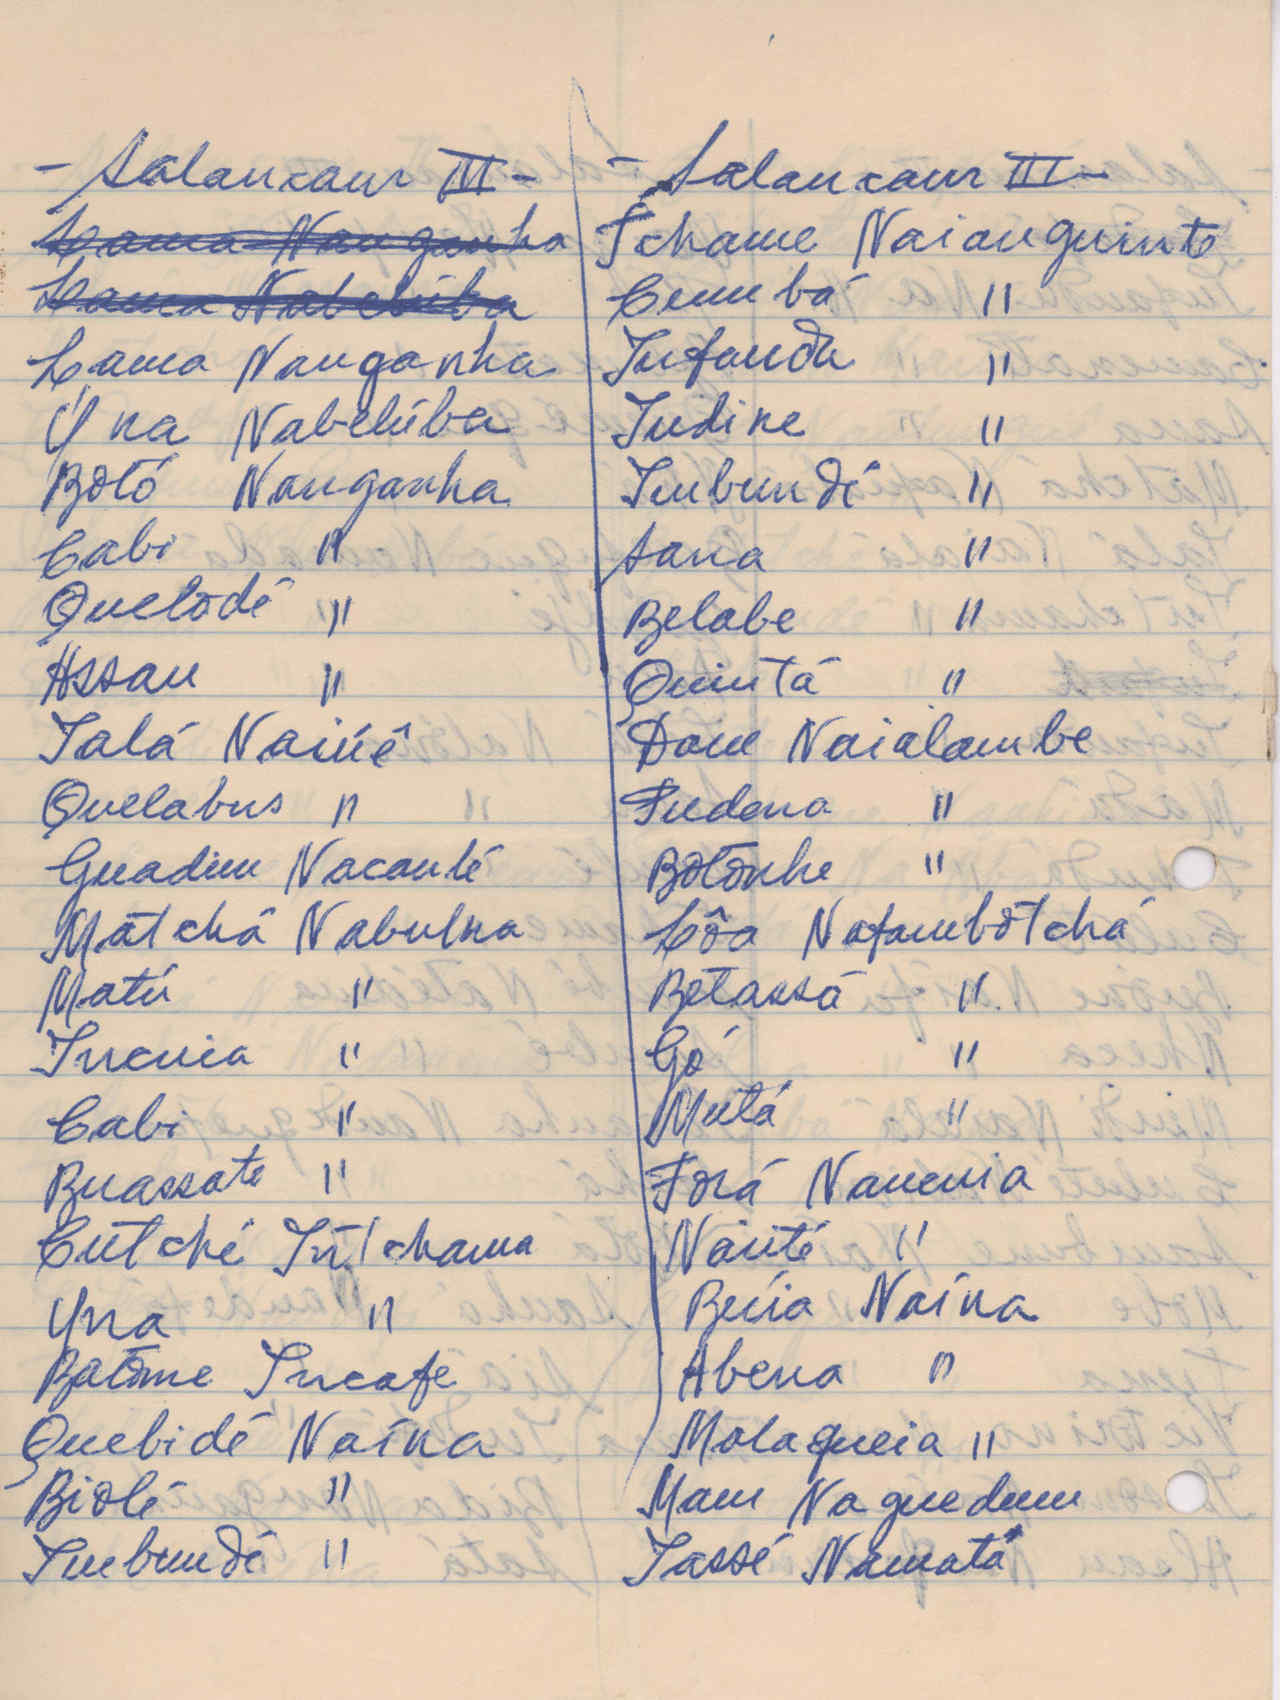 - Salancaur III -
Lama Nanganha
Lama Nabelúba
Lama Nanganha
Yna Nabelúba
Botó Nanganha
Cabi "
Quelodé "
Assan "
Talá Nainé
Quelabus "
Guadim Nacanté
Matchá Nabulna
Matú "
Incuia "
Cabi "
Buassate "
Cutché Intchama
Yna "
Batome Incafe
Quebidé Naína
Biolé "
Imbundé "
- Salancaur III -
Tchame Naianguinte
Cumbá "
Infanda "
Indine "
Imbundé "
Sana "
Belabe "
Quintá "
Dam Naialambe
Fudena "
Botonhe "
Côa Nafambotchá
Betassá "
Gó "
Mutá "
Forá Nancuia
Nanté "
Benia Naína
Abena "
Malagueia "
Mam Naguedum
Tassé Namatá